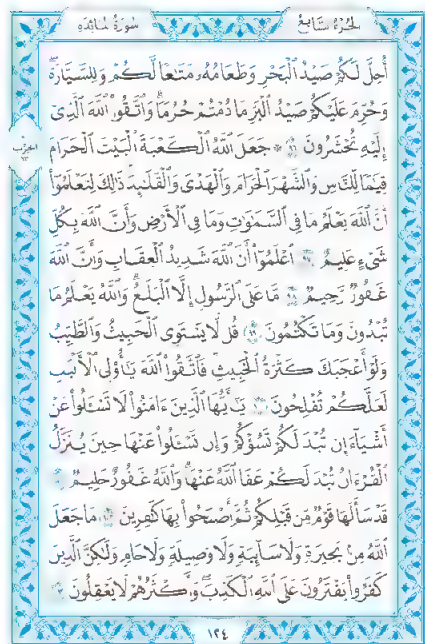 الجزء السابع
سورة المائدة
أُحِلَّ لَكُمْ صَيْدُ ٱلْبَحْرِ وَطَعَامُهُۥ مَتَٰعًا لَّكُمْ وَلِلسَّيَّارَةِ
وَحُرِّمَ عَلَيْكُمْ صَيْدُ ٱلْبَرِّ مَا دُمْتُمْ حُرُمًا وَٱتَّقُوا۟ ٱللَّهَ ٱلَّذِىٓ
إِلَيْهِ تُحْشَرُونَ ۝٩٦ ۞ جَعَلَ ٱللَّهُ ٱلْكَعْبَةَ ٱلْبَيْتَ ٱلْحَرَامَ
الحزب
قِيَٰمًا لِّلنَّاسِ وَٱلشَّهْرَ ٱلْحَرَامَ وَٱلْهَدْىَ وَٱلْقَلَٰٓئِدَ ذَٰلِكَ لِتَعْلَمُوٓا۟
أَنَّ ٱللَّهَ يَعْلَمُ مَا فِى ٱلسَّمَٰوَٰتِ وَمَا فِى ٱلْأَرْضِ وَأَنَّ ٱللَّهَ بِكُلِّ
شَىْءٍ عَلِيمٌ ۝٩٧ ٱعْلَمُوٓا۟ أَنَّ ٱللَّهَ شَدِيدُ ٱلْعِقَابِ وَأَنَّ ٱللَّهَ
غَفُورٌ رَّحِيمٌ ۝٩٨ مَّا عَلَى ٱلرَّسُولِ إِلَّا ٱلْبَلَٰغُ وَٱللَّهُ يَعْلَمُ مَا
تُبْدُونَ وَمَا تَكْتُمُونَ ۝٩٩ قُل لَّا يَسْتَوِى ٱلْخَبِيثُ وَٱلطَّيِّبُ
وَلَوْ أَعْجَبَكَ كَثْرَةُ ٱلْخَبِيثِ فَٱتَّقُوا۟ ٱللَّهَ يَٰٓأُو۟لِى ٱلْأَلْبَٰبِ
لَعَلَّكُمْ تُفْلِحُونَ ۝١٠٠ يَٰٓأَيُّهَا ٱلَّذِينَ ءَامَنُوا۟ لَا تَسْـَٔلُوا۟ عَنْ
أَشْيَآءَ إِن تُبْدَ لَكُمْ تَسُؤْكُمْ وَإِن تَسْـَٔلُوا۟ عَنْهَا حِينَ يُنَزَّلُ
ٱلْقُرْءَانُ تُبْدَ لَكُمْ عَفَا ٱللَّهُ عَنْهَا وَٱللَّهُ غَفُورٌ حَلِيمٌ
قَدْ سَأَلَهَا قَوْمٌ مِّن قَبْلِكُمْ ثُمَّ أَصْبَحُوا۟ بِهَا كَٰفِرِينَ مَا جَعَلَ
ٱللَّهُ مِنۢ بَحِيرَةٍ وَلَا سَآئِبَةٍ وَلَا وَصِيلَةٍ وَلَا حَامٍ وَلَٰكِنَّ ٱلَّذِينَ
كَفَرُوا۟ يَفْتَرُونَ عَلَى ٱللَّهِ ٱلْكَذِبَ وَأَكْثَرُهُمْ لَا يَعْقِلُونَ
١٢٤